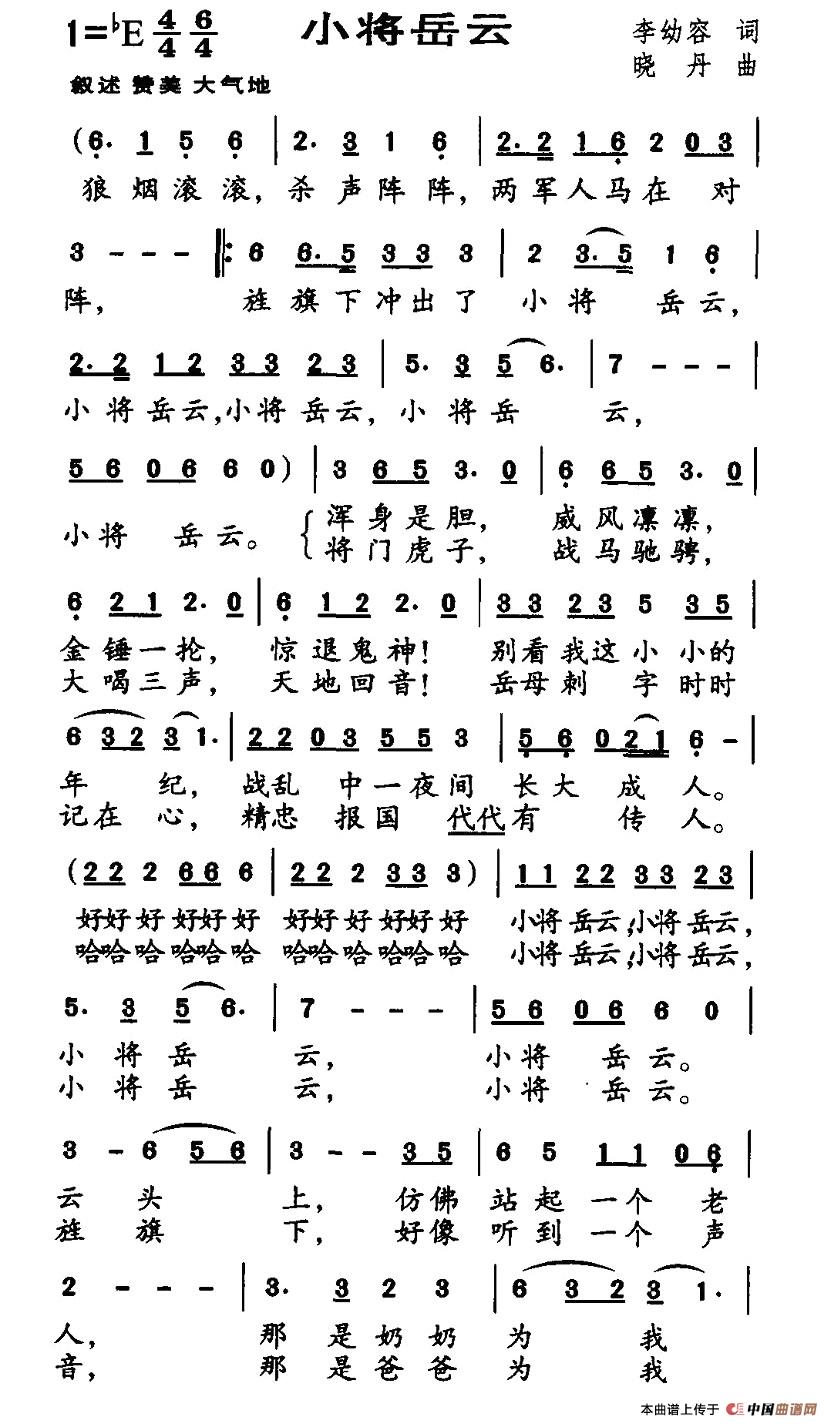 1=♭E 4/4 6/4 小将岳云 李幼容 词
叙述 赞美 大气地 晓 丹 曲
(6. 1 5 6 | 2. 3 1 6 | 2. 2 1 6 2 0 3 |
狼烟滚滚，杀声阵阵，两军人马在 对
3 - - - |: 6 6. 5 3 3 3 3 | 2 3. 5 1 6 |
阵， 旌旗下冲出了 小将 岳云，
2. 2 1 2 3 3 2 3 | 5. 3 5 6. | 7 - - - |
小将岳云，小将岳云，小将岳 云，
5 6 0 6 6 0 ) | 3 6 5 3. 0 | 6 6 5 3. 0 |
小将 岳云。 浑身是胆， 威风凛凛，
将门虎子， 战马驰骋，
6 2 1 2. 0 | 6 1 2 2. 0 | 3 3 2 3 5 3 5 |
金锤一抡， 惊退鬼神！ 别看我这小小的
大喝三声， 天地回音！ 岳母刺 字时时
6 3 2 3 1. | 2 2 0 3 5 5 3 | 5 6 0 2 1 6 - |
年 纪，战乱 中一夜间 长大 成 人。
记在 心，精忠 报国 代代有 传人。
(2 2 2 6 6 6 | 2 2 2 3 3 3 ) | 1 1 2 2 3 3 2 3 |
好好好好好好 好好好好好好 小将岳云，小将岳云，
哈哈哈哈哈哈 哈哈哈哈哈哈 小将岳云，小将岳云，
5. 3 5 6. | 7 - - - | 5 6 0 6 6 0 |
小将岳 云， 小将 岳云。
小将岳 云， 小将 岳云。
3 - 6 5 6 | 3 - - 3 5 | 6 5 1 1 0 6 |
云 头 上， 仿佛站起一个 老
旌 旗 下， 好像听到一个 声
2 - - - | 3. 3 2 3 | 6 3 2 3 1. |
人， 那是奶奶为 我
音， 那是爸爸为 我
本曲谱上传于 中国曲谱网